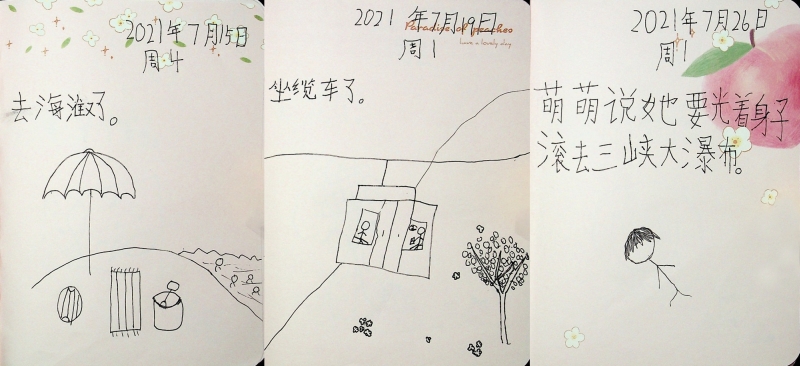 2021年7月15日
周4
去海滩了。
2021年7月19日
Paradise of peaches
have a lovely day
周1
坐缆车了。
2021年7月26日
周1
萌萌说她要光着身子
滚去三峡大瀑布。